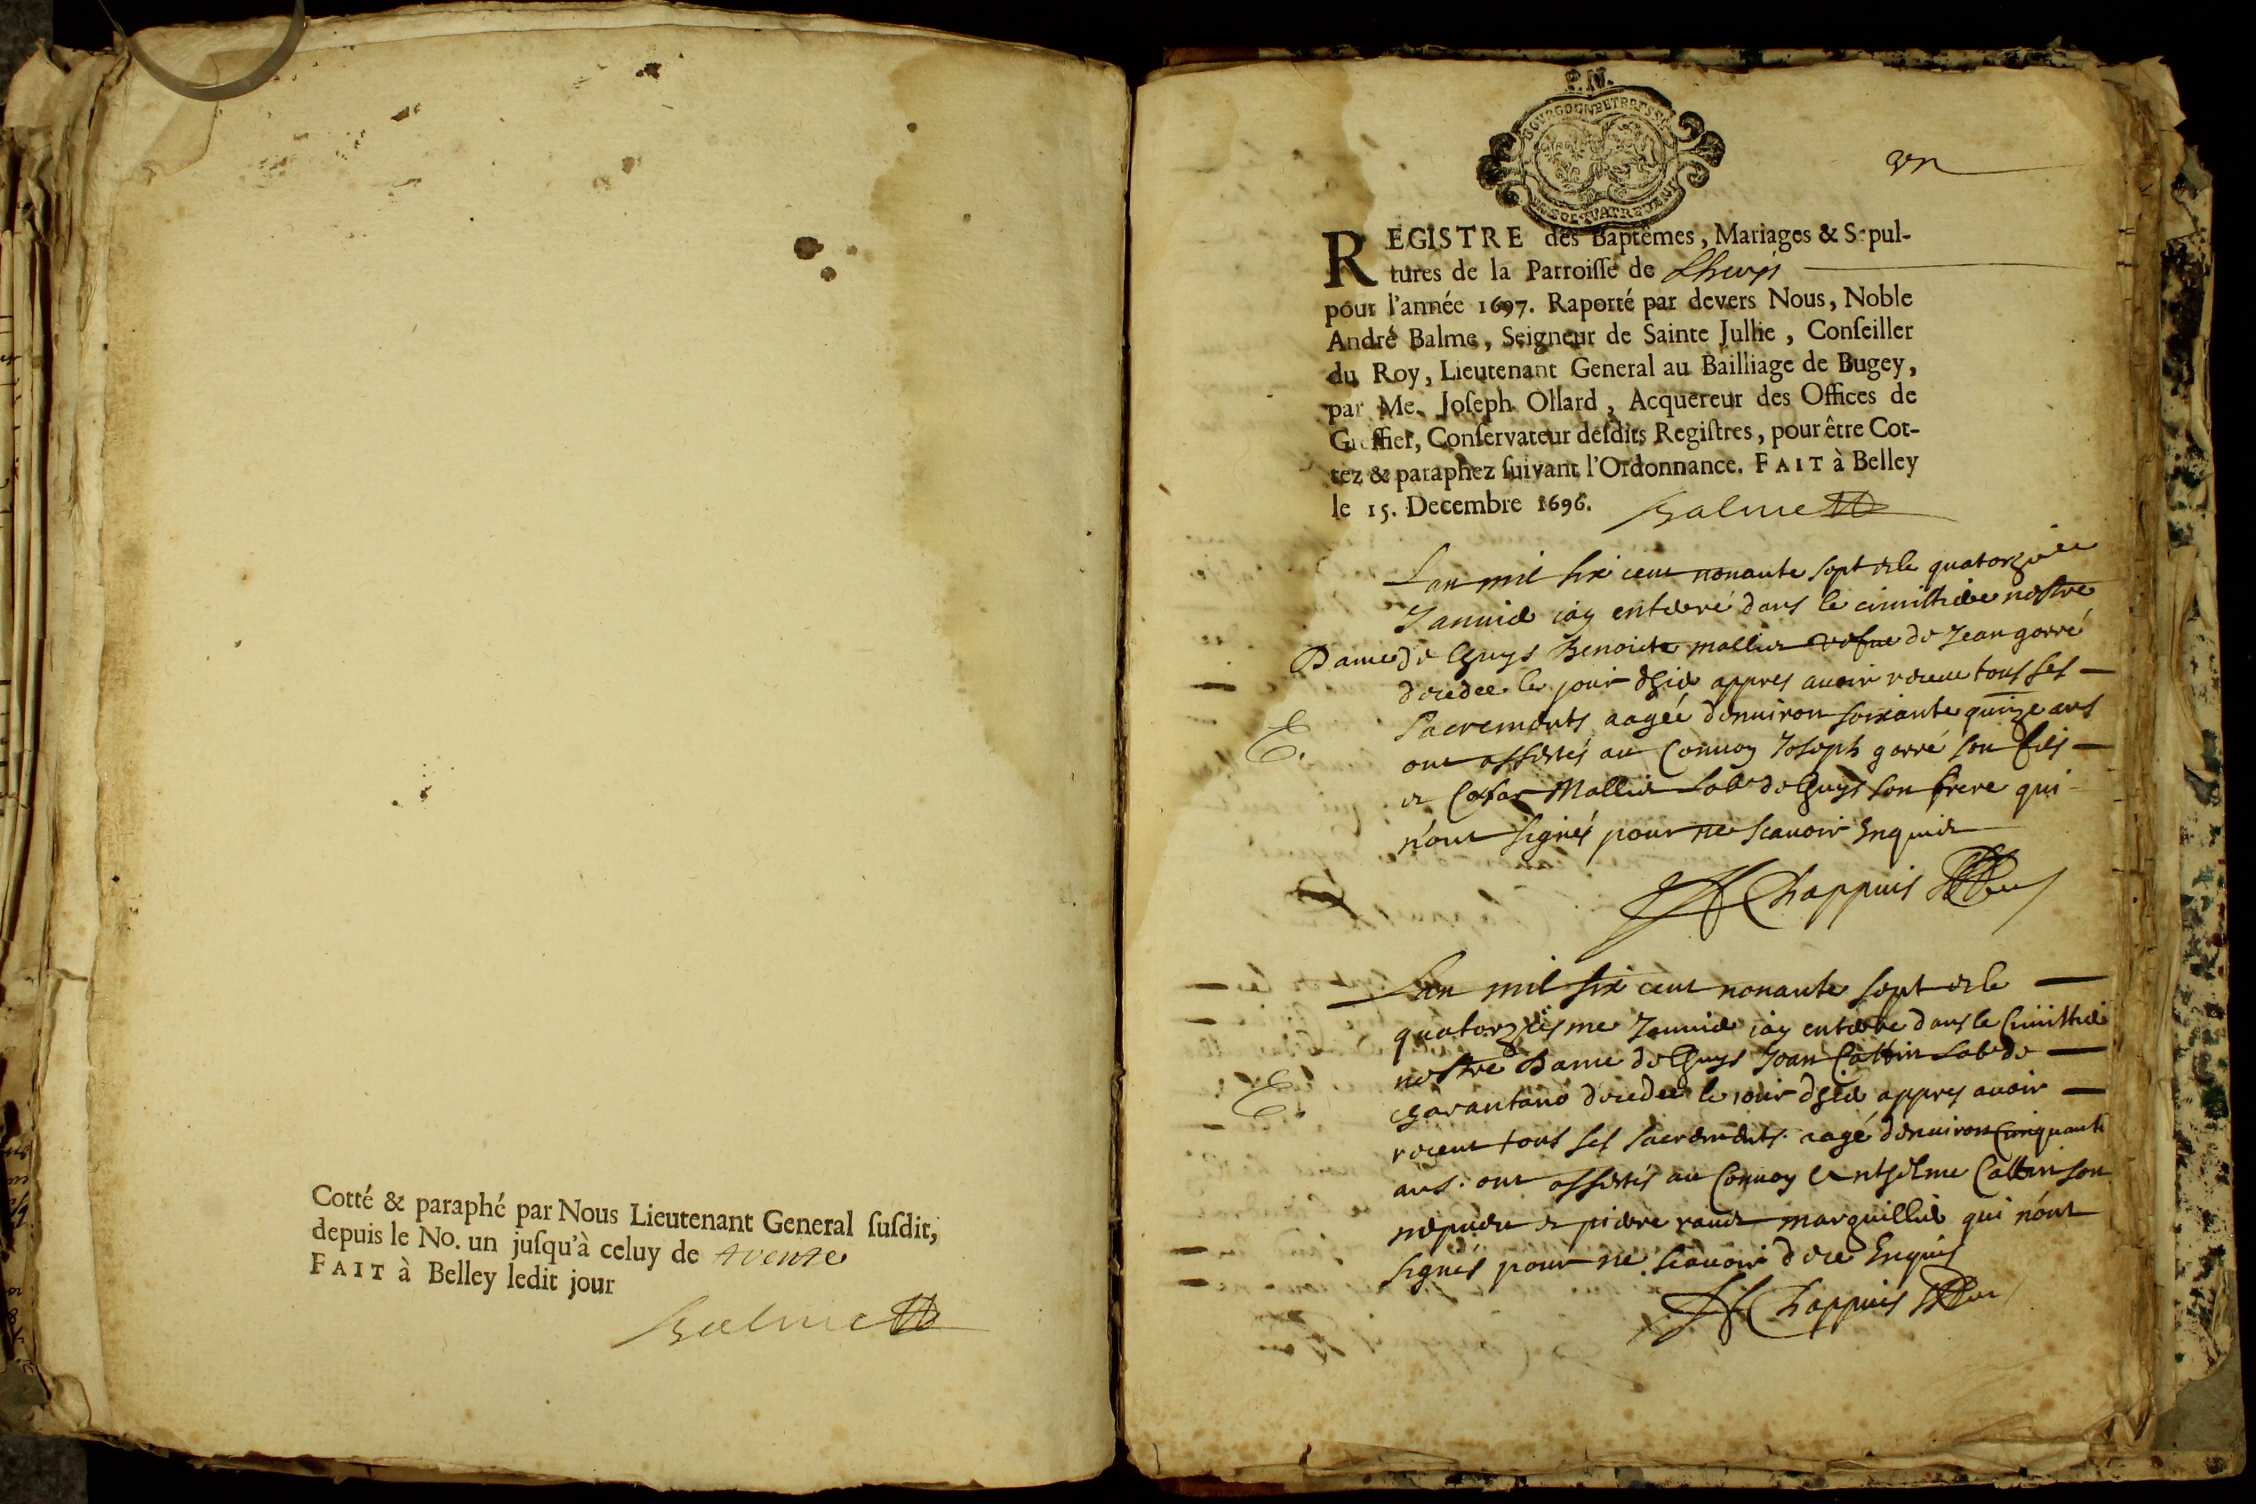 Cotté & paraphé par Nous Lieutenant General ſuſdit,
depuis le No. un juſqu'à celuy de trente
FAIT à Belley ledit jour
Balme
P.N.
BOURGOGNE ET BRESSE
un
REGISTRE des Baptêmes, Mariages & Sepul-
tures de la Parroiſſe de Lhuys
pour l'année 1697. Raporté par devers Nous, Noble
André Balme, Seigneur de Sainte Jullie, Conſeiller
du Roy, Lieutenant General au Bailliage de Bugey,
par Me. Joſeph Ollard, Acquereur des Offices de
Greffier, Conſervateur deſdits Regiſtres, pour être Cot-
tez & paraphez ſuivant l'Ordonnance. FAIT à Belley
le 15. Decembre 1696. Balme
Lan mil six cent nonante sept et le quatorzie
Janvier iay enterré dans le cimitiere nostre
Dame de Lhuys Benoite mallier vefue de Jean gorré
decedee le jour dhier appres auoir receu tous ses
E. Sacrements aagée denuiron soixante quinze ans
ont assistés au Conuoy Joseph gorré son fils
et Cesar Mallier lab de Lhuys son frere qui
n'ont signés pour ne scauoir Enquis
Chappuis
Lan mil six cent nonante sept et le
quatorziesme Januier iay enterre dans le Cimittiere
nostre Dame de Lhuys Jean Cattin Lab de
E. decedee le iour dhier appres auoir
receut tous ses sacrements aagé denuiron Cinquante
ans. ont assistés au Conuoy Anthelme Cattin son
nepueu et pierre marguillier qui n'ont
signés pour ne scauoir de ce Enquis
Chappuis